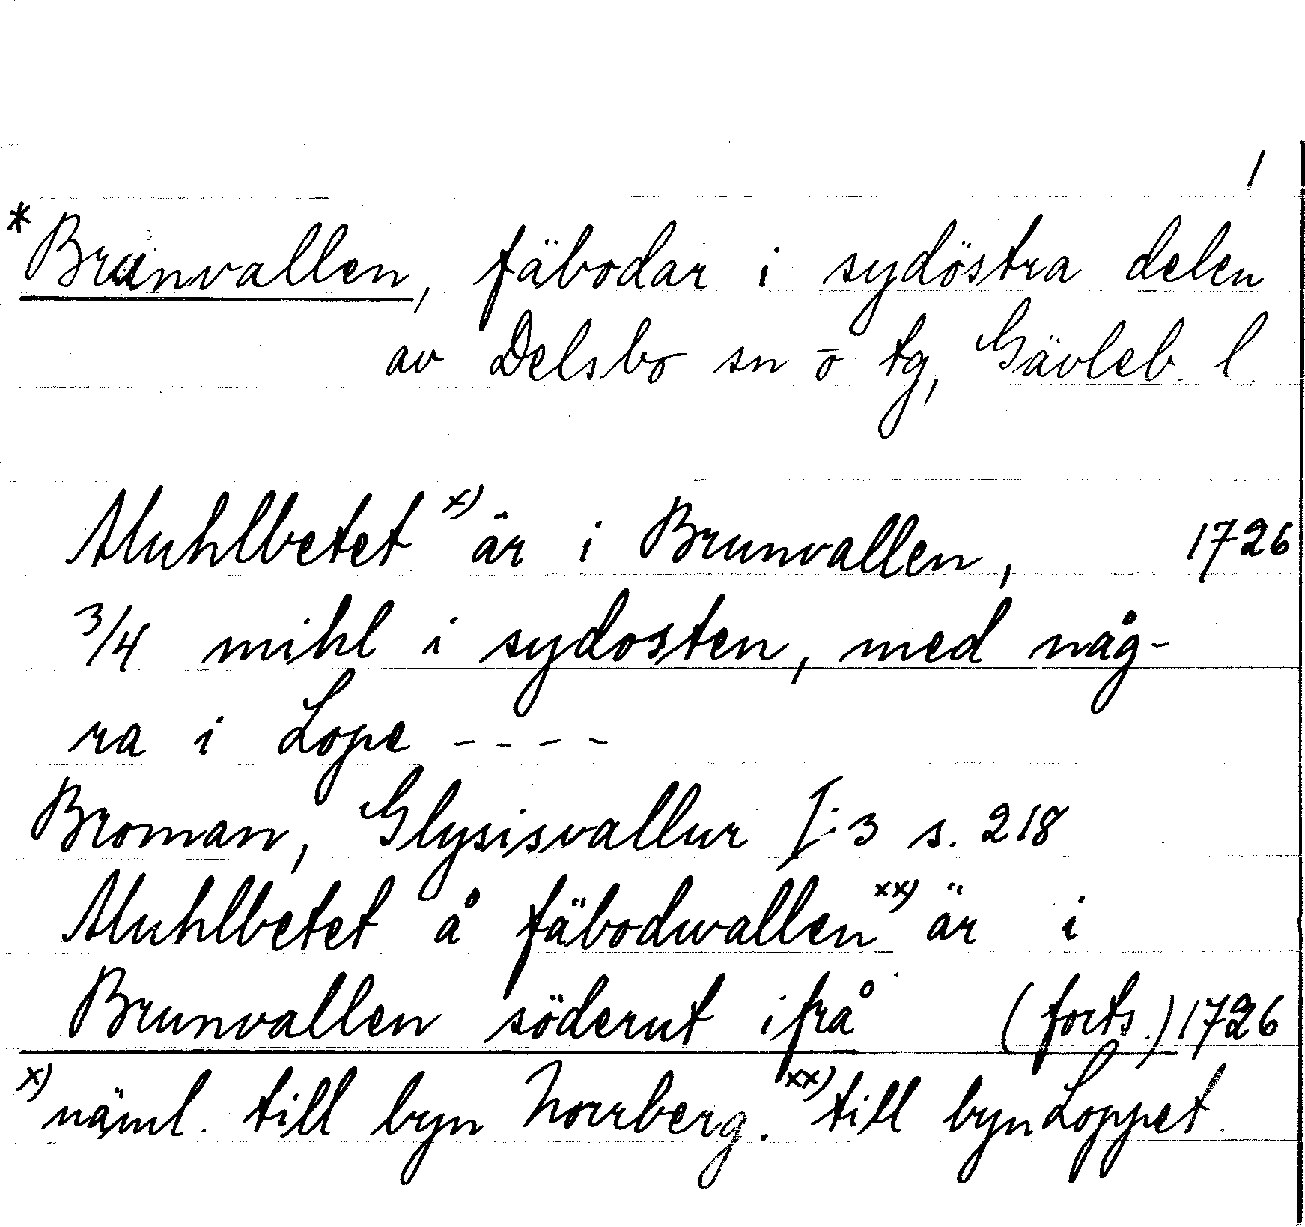 1
*Brunvallen, fäbodar i sydöstra delen
av Delsbo sn o tg, Gävleb. l
Muhlbetet x) är i Brunvallen, 1726
3/4 mihl i sydosten, med någ-
ra i Lope - - - -
Broman, Glysisvallur I:3 s. 218
Muhlbetet å fäbodwallen xx) är i
Brunvallen söderut ifrå (forts.) 1726
x) näml. till byn Norrberg. xx) till byn Loppet.